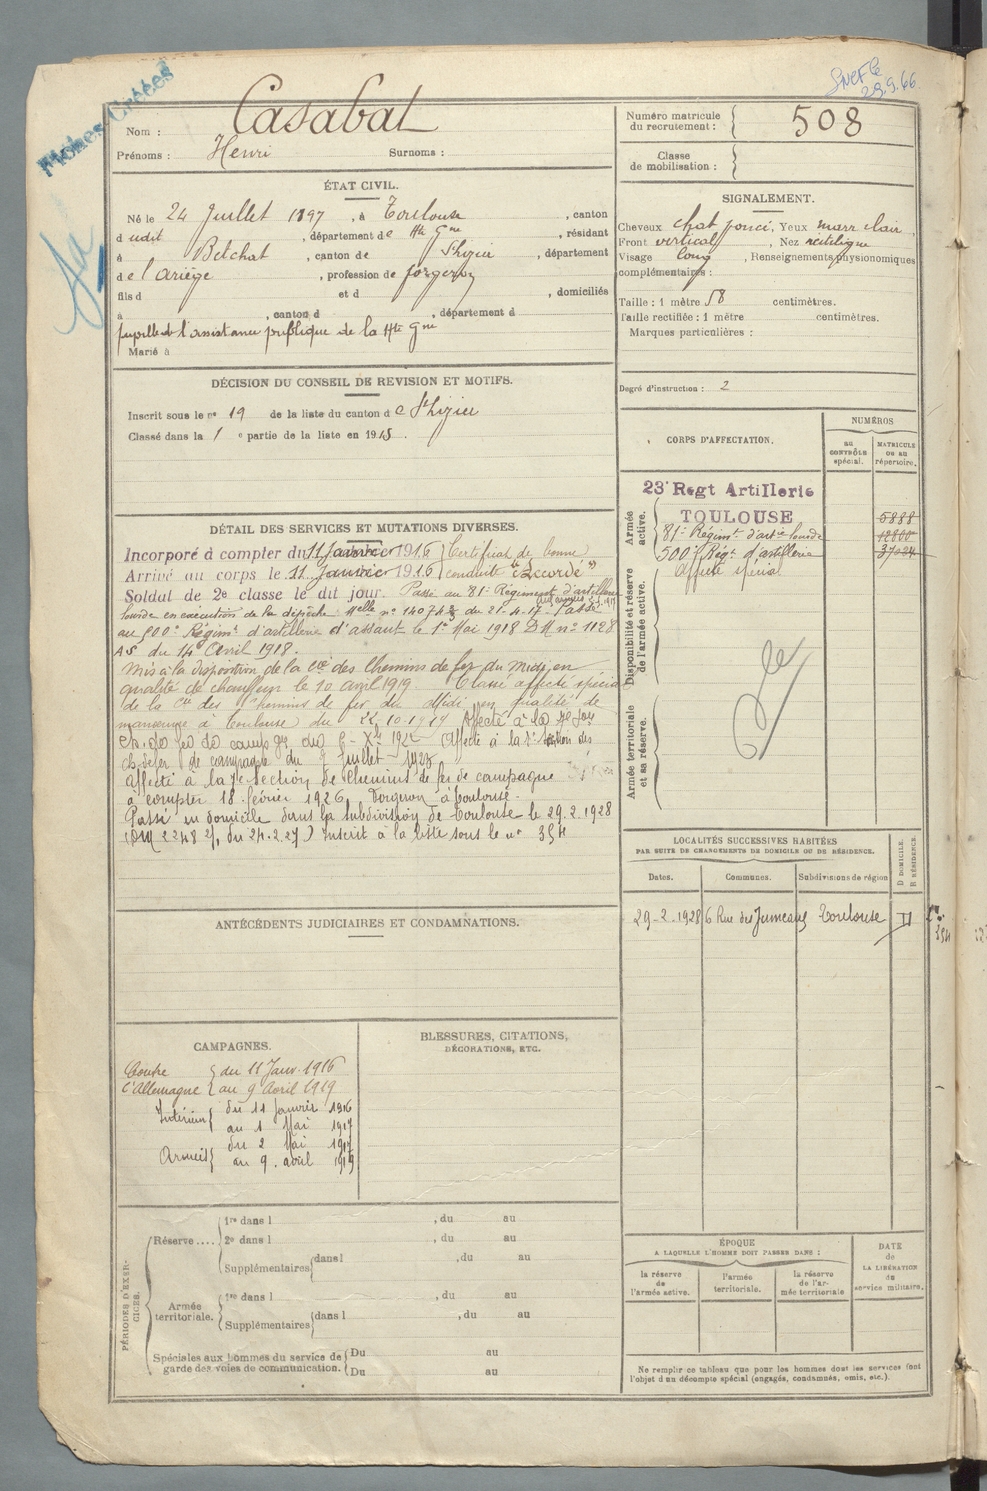 Fiches Créées
SNCF
29.9.66
Nom : Casabat
Prénoms : Henri Surnoms :
Numéro matricule du recrutement : 508
Classe de mobilisation :
ÉTAT CIVIL.
Né le 24 Juillet 1897, à Toulouse, canton
dudit, département de Hte Gne, résidant
à Betchat, canton de St Lizier, département
de l'Ariège, profession de forgeron
fils d et d , domiciliés
à , canton d , département d
pupille de l'assistance publique de la Hte Gne
Marié à
SIGNALEMENT.
Cheveux chat foncé, Yeux marr clair,
Front vertical, Nez rectiligne
Visage long, Renseignements physionomiques
complémentaires :
Taille : 1 mètre 58 centimètres.
Taille rectifiée : 1 mètre centimètres.
Marques particulières :
Degré d'instruction : 2
DÉCISION DU CONSEIL DE REVISION ET MOTIFS.
Inscrit sous le no 19 de la liste du canton de St Lizier
Classé dans la 1 e partie de la liste en 1915.
CORPS D'AFFECTATION.
NUMÉROS
au CONTRÔLE spécial.
MATRICULE ou au répertoire.
Armée active.
23e Regt Artillerie
TOULOUSE 5888
81e Régimt d'artie lourde 12800
500e Régt d'artillerie 37024
Affecté spécial
Disponibilité et réserve de l'armée active.
Armée territoriale et sa réserve.
DÉTAIL DES SERVICES ET MUTATIONS DIVERSES.
Incorporé à compter du 11 Janvier 1916 Certificat de bonne
Arrivé au corps le 11 Janvier 1916 conduite "Accordé"
Soldat de 2e classe le dit jour. Passé au 81e Régiment d'artillerie
lourde en exécution de la dépêche Melle no 14074 du 21-4-17. Passé
au 500e Régimt d'artillerie d'assaut le 1er Mai 1918 DM no 1128
AS du 14 Avril 1918.
Mis à la disposition de la Cie des Chemins de fer du Midi en
qualité de chauffeur le 10 avril 1919. Classé affecté spécial
de la Cie des Chemins de fer du Midi en qualité de
manœuvre à Toulouse du 22.10.19 Affecté à la
ch. de fer de campagne du Affecté à la section des
ch. de fer de campagne du Juillet 1923
Affecté à la 7e Section de Chemins de fer de campagne
à compter 18 février 1926. Forgeron à Toulouse.
Passé en domicile dans la subdivision de Toulouse le 29.2.1928
(DM 2248 2/, du 24.2.27) Inscrit à la liste sous le no 354
LOCALITÉS SUCCESSIVES HABITÉES
PAR SUITE DE CHANGEMENTS DE DOMICILE OU DE RÉSIDENCE.
Dates. Communes. Subdivisions de région D DOMICILE. R RÉSIDENCE.
29-2.1928 6 Rue des Jumeaux Toulouse D
354
ANTÉCÉDENTS JUDICIAIRES ET CONDAMNATIONS.
CAMPAGNES.
Contre du 11 Janv. 1916
l'Allemagne au 9 Avril 1919
Intérieur du 11 Janvier 1916
au 1 Mai 1917
Armées du 2 Mai 1917
au 9 avril 1919
BLESSURES, CITATIONS,
DÉCORATIONS, ETC.
PÉRIODES D'EXERCICES.
Réserve .... 1re dans l , du au
2e dans l , du au
Supplémentaires dans l , du au
Armée territoriale. 1re dans l , du au
Supplémentaires dans l , du au
Spéciales aux hommes du service de Du au
garde des voies de communication. Du au
ÉPOQUE
A LAQUELLE L'HOMME DOIT PASSER DANS :
la réserve de l'armée active.
l'armée territoriale.
la réserve de l'armée territoriale
DATE de LA LIBÉRATION du service militaire.
Ne remplir ce tableau que pour les hommes dont les services font
l'objet d'un décompte spécial (engagés, condamnés, omis, etc.).